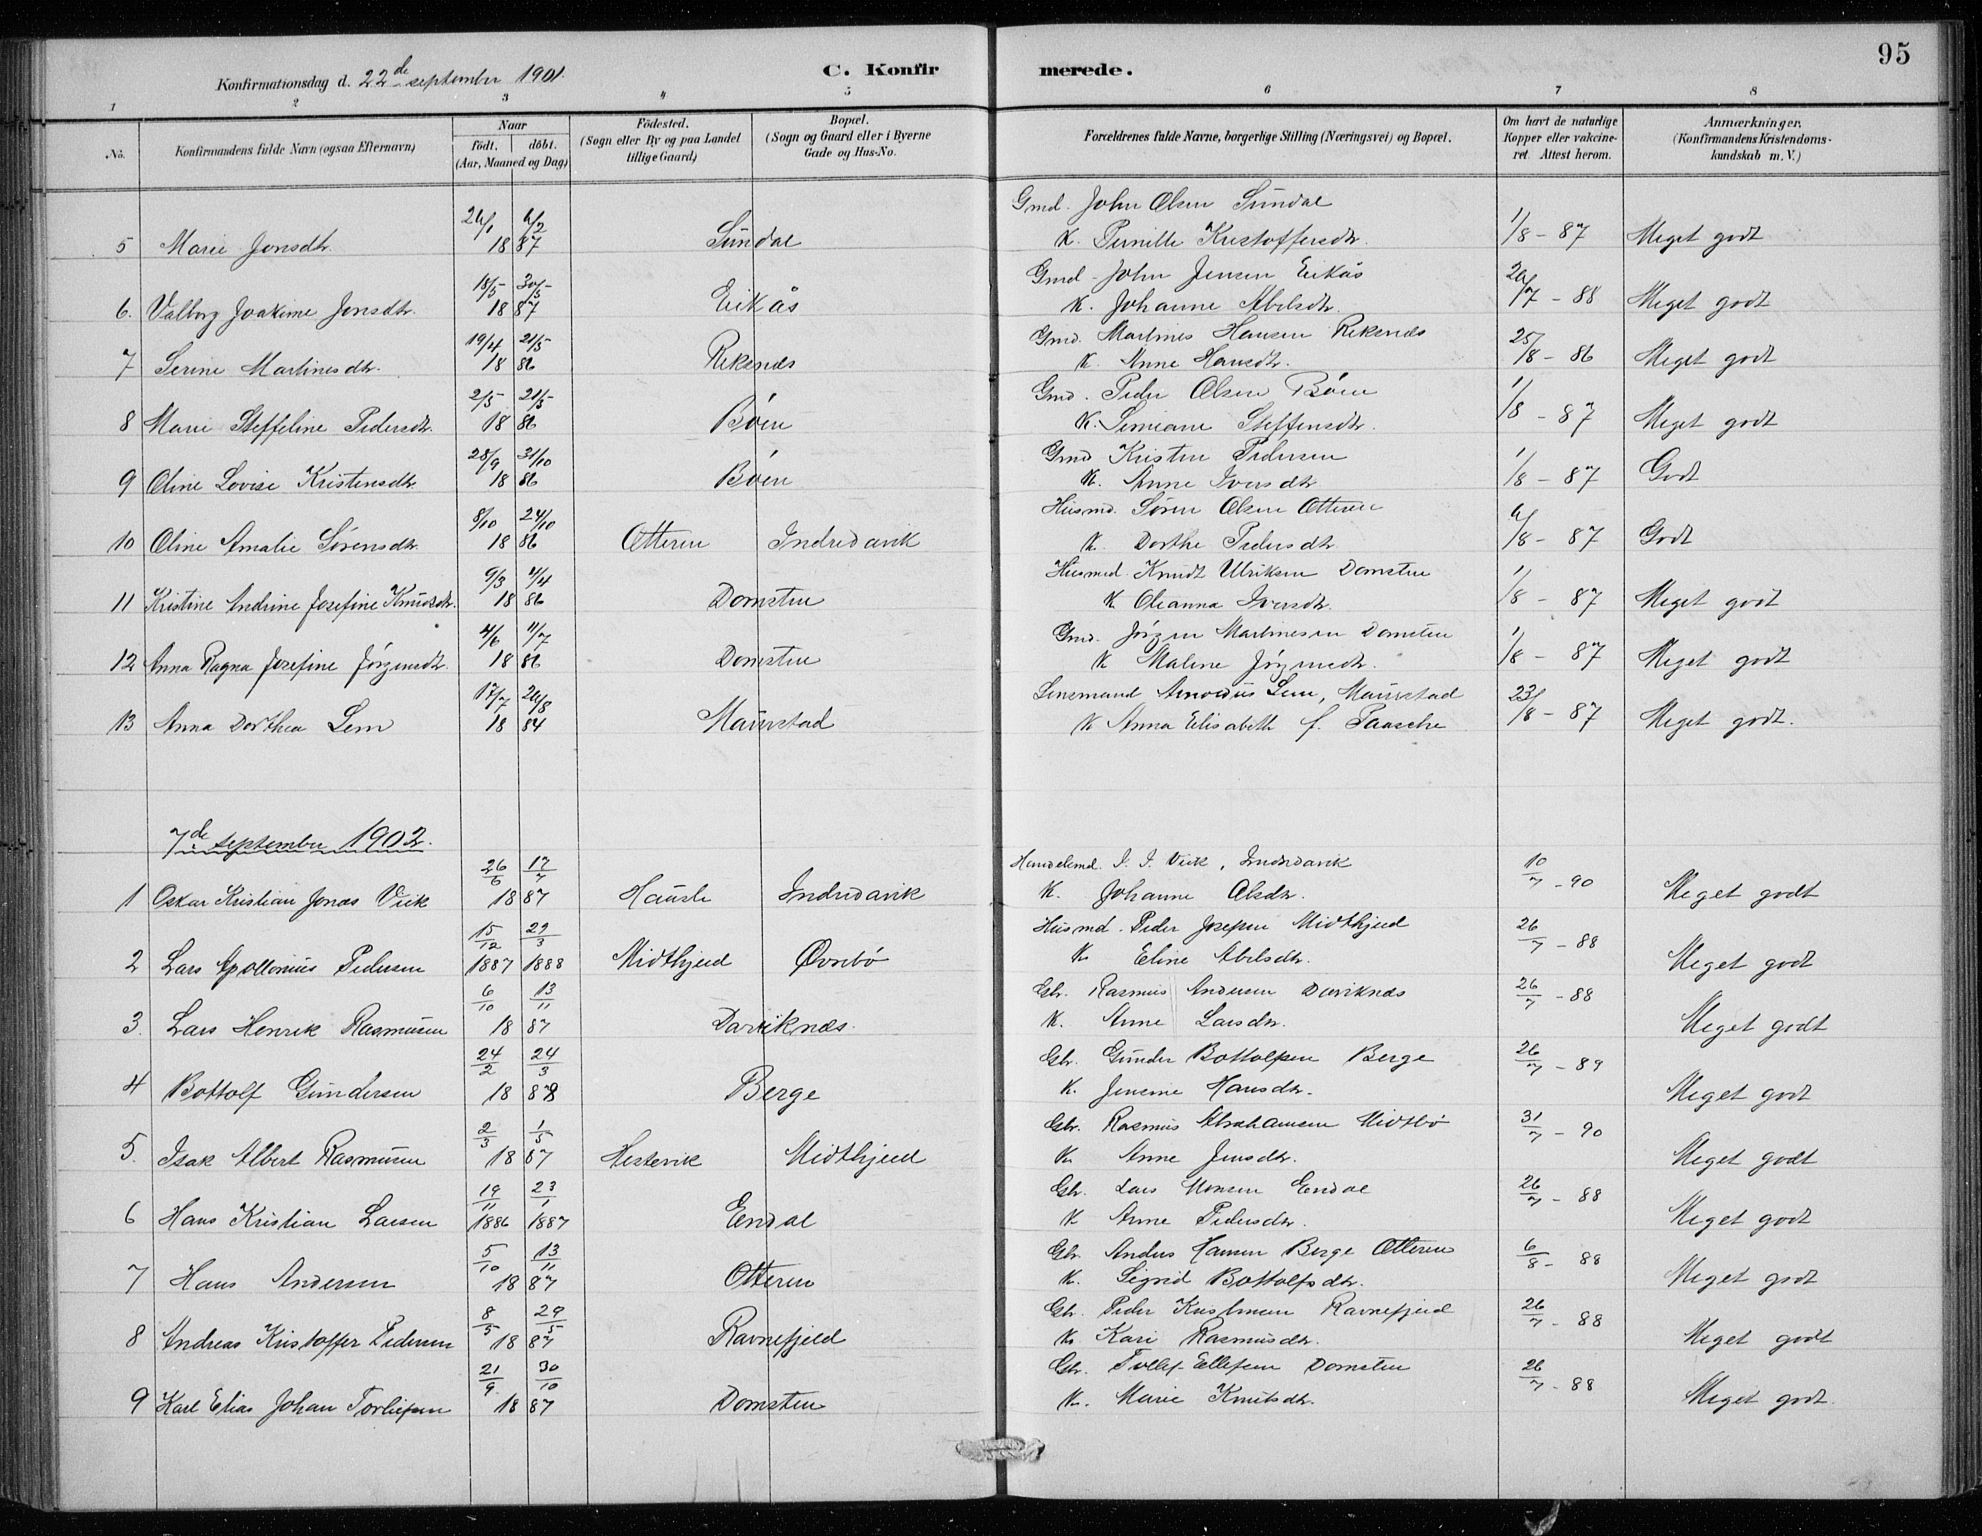 95
Konfirmationsdag d. 22de september 1901.
C. Konfirmerede.
1 2 3 4 5 6 7 8
No. Konfirmandens fulde Navn (ogsaa Efternavn) Naar födt. döbt. (Aar, Maaned og Dag) Födested. (Sogn eller By og paa Landet tillige Gaard) Bopæl. (Sogn og Gaard eller i Byerne Gade og Hus-No. Forældrenes fulde Navne, borgerlige Stilling (Næringsvei) og Bopæl. Om havt de naturlige Kopper eller vakcineret. Attest herom. Anmærkninger. (Konfirmandens Kristendomskundskab m. V.)
Gmd. John Olsen Sundal
5 Marie Jonsdtr. 26/1 6/2 1887 Sundal K. Pernille Kristoffersdtr. 1/8 - 87 Meget godt
Gmd. John Jensen Eikås
6. Valborg Joakime Jonsdtr. 18/5 30/5 1887 Eikås K. Johanne Abelsdtr. 26/7 - 88 Meget godt
Gmd. Martines Hansen Reksnes
7 Serine Martinesdtr. 19/4 21/5 1886 Reksnes K. Anne Hansdtr. 25/8 - 86 Meget godt
Gmd. Peder Olsen Böen
8 Marie Steffeline Pedersdtr. 2/5 21/5 1886 Böen K. Simiane Steffensdtr. 1/8 - 87 Meget godt
Gmd Kristen Pedersen
9 Oline Lovise Kristensdtr. 28/9 31/10 1886 Böen K. Anne Iversdtr 1/8 - 87 Godt
Husmd. Sören Olsen Otteren
10 Oline Amalie Sörensdtr. 8/10 24/10 1886 Otteren Indredavik K. Dorthe Pedersdtr 6/8 - 87 Godt
Husmd. Knudt Ulriksen Domsten
11 Kristine Andrine Josefine Knudsdtr. 9/3 4/4 1886 Domsten K Oleanna Iversdtr. 1/8 - 87 Meget godt
Gmd. Jörgen Martinesen Domsten
12 Anna Ragna Josefine Jörgensdtr. 4/6 11/7 1886 Domsten K Malene Jörgensdtr. 1/8 - 87 Meget godt
Lensmand Lem, Maurstad
13 Anna Dorthea Lem 17/7 26/8 1884 Maurstad K Anna Elisabeth f. Paasche 23/8 - 87 Meget godt.
7de september 1902.
Handelsmd. J. J. Viik, Indredavik
1 Oskar Kristian Jonas Viik 26/6 17/7 1887 Hausle Indredavik K. Johanne Olsdtr. 10/7 - 90 Meget godt
Husmd. Peder Josefsen Midthjeld
2 Lars Apollonius Pedersen 15/12 1887 29/3 1888 Midthjeld Övrebö K. Eline Abelsdtr. 26/7 - 88 Meget godt
Gbr. Rasmus Andersen Daviknes
3. Lars Henrik Rasmusen 6/10 13/11 1887 Daviknæs. K. Anne Larsdtr. 26/7 - 88 Meget godt
Gbr. Gunder Bottolfsen Berge
4 Bottolf Gundersen 24/2 24/3 1878 Berge K. Jensine Hansdtr. 26/7 - 89 Meget godt
Gbr. Rasmus Abrahamsen Midtbö
5. Isak Albert Rasmusen 2/3 1/5 1887 Hestevik Midthjeld K. Anne Jensdtr. 31/7 - 90 Meget godt
Gbr. Lars Monsen Endal
6 Hans Kristian Larsen 19/11 1886 23/1 1887 Endal K Anne Pedersdtr. 26/7 - 88 Meget godt
Gbr. Anders Hansen Berge Otteren
7 Hans Andersen 5/10 13/11 1887 Otteren K. Sigrid Bottolfsdtr. 6/8 - 88 Meget godt
Gbr. Peder Kristensen Ravnefjeld
8 Andreas Kristoffer Pedersen 8/5 29/5 1887 Ravnefjeld K. Kari Rasmusdtr. 26/7 - 88 Meget godt
Gbr. Tollef Ellefsen Domsten
9 Karl Elias Johan Torleifsen 21/9 30/10 1887 Domsten K. Marie Knutsdtr. 26/7 - 88 Meget godt.